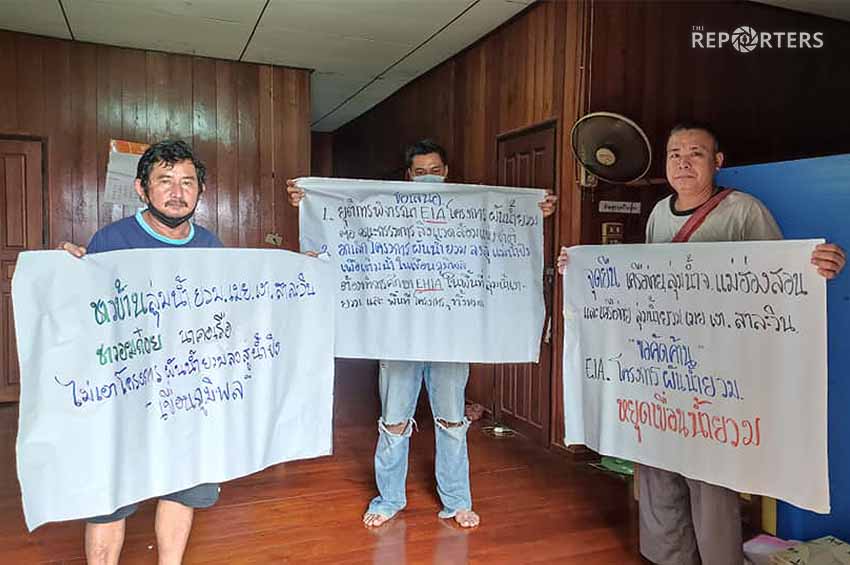 THE
REPORTERS
ชาวบ้านลุ่มน้ำยวม.เมย.เงา.สาละวิน
ชาวอมก๋อย นาคอเรือ
ไม่เอาโครงการผันน้ำยวมลงสู่น้ำปิง
-เขื่อนภูมิพล
ข้อเสนอ
1. ยุติการพิจารณา EIA โครงการ ผันน้ำยวม
คณะกรรมการ สิ่งแวดล้อมแห่งชาติ
2. ยกเลิกโครงการผันน้ำยวม
EHIA ในพื้นที่ลุ่มน้ำเงา-
ยวม และ พื้นที่ โครงการ
จุดยืน เครือข่ายลุ่มน้ำ จ.แม่ฮ่องสอน
และเครือข่าย ลุ่มน้ำยวม เมย เงา. สาละวิน.
"ขอคัดค้าน"
EIA. โครงการ ผันน้ำยวม.
หยุดเขื่อนน้ำยวม